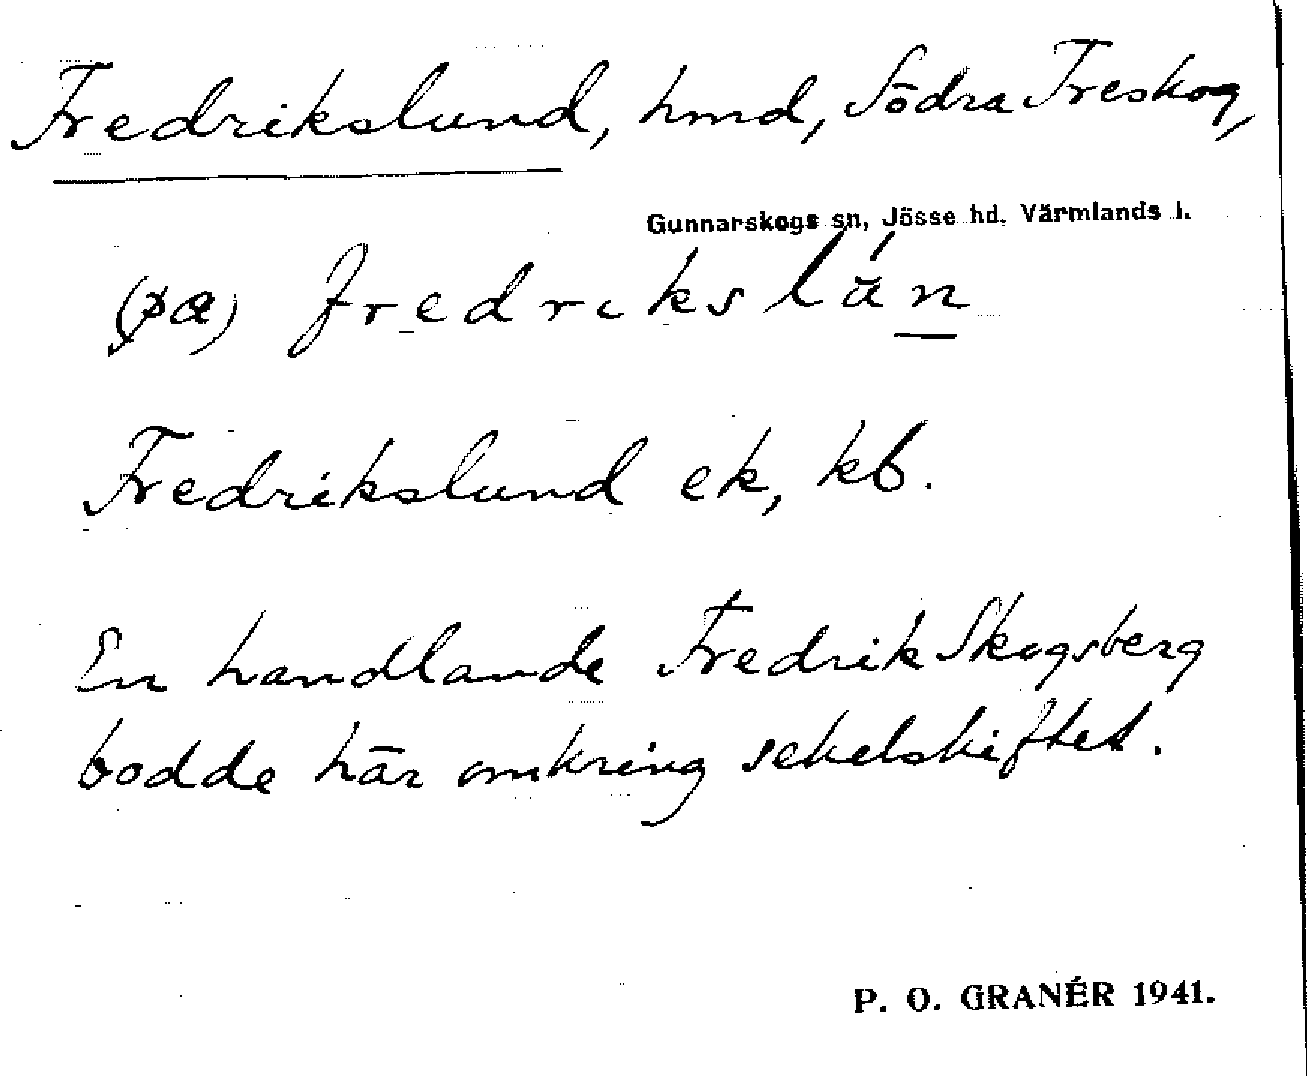 Fredrikslund, hmd, Södra Treskog,
Gunnarskogs sn, Jösse hd. Värmlands l.
(pa) fredrikslán
Fredrikslund ek, kb.
En handlande Fredrik Skogsberg
bodde här omkring sekelskiftet.
P. O. GRANÉR 1941.